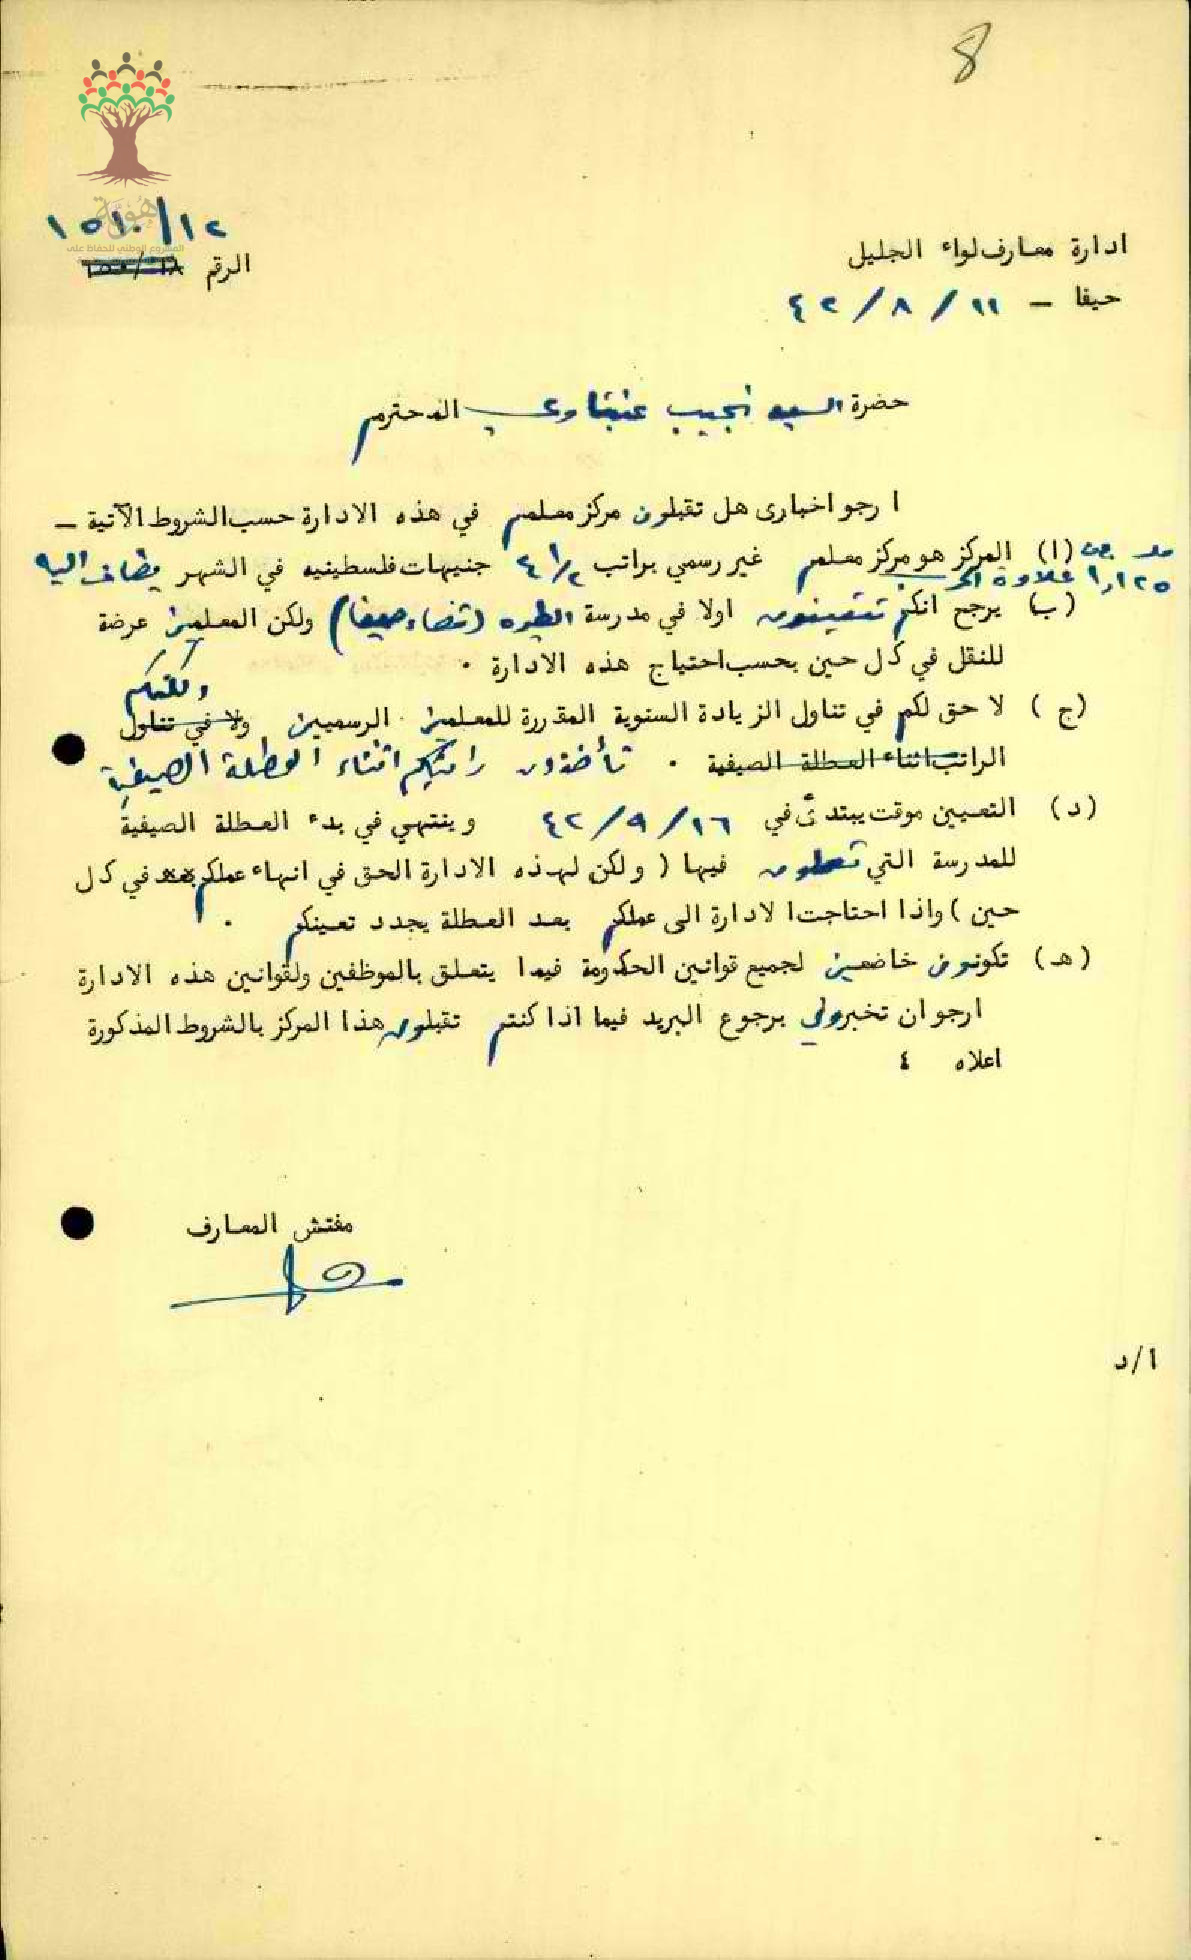 8
هُوية
المشروع الوطني للحفاظ على
١٥١٠/١٢
الرقم
ادارة معارف لواء الجليل
حيفا – ١١ / ٨ / ٤٢
حضرة السيد نجيب عنبتاوي المحترم
ارجو اخباري هل تقبلون مركز معلم في هذه الادارة حسب الشروط الآتية –
(ا) المركز هو مركز معلم غير رسمي براتب ٤ ١/٢ جنيهات فلسطينيه في الشهر يضاف اليه
١,١٢٥ علاوة
(ب) يرجح انكم تتعينون اولا في مدرسة الطيره (قضاء حيفا) ولكن المعلمين عرضة
للنقل في كل حين بحسب احتياج هذه الادارة .
(ج) لا حق لكم في تناول الزيادة السنوية المقررة للمعلمين الرسميين ولا في تناول ولكنكم
الراتب اثناء العطلة الصيفية . تأخذون راتبكم اثناء العطلة الصيفية
(د) التعيين موقت يبتدئ في ١٦ / ٩ / ٤٢ وينتهي في بدء العطلة الصيفية
للمدرسة التي تعملون فيها ( ولكن لهذه الادارة الحق في انهاء عملكم في كل
حين ) واذا احتاجت الادارة الى عملكم بعد العطلة يجدد تعيينكم .
(هـ) تكونون خاضعين لجميع قوانين الحكومة فيما يتعلق بالموظفين ولقوانين هذه الادارة
ارجو ان تخبروني برجوع البريد فيما اذا كنتم تقبلون هذا المركز بالشروط المذكورة
اعلاه ٤
مفتش المعارف
ا/د